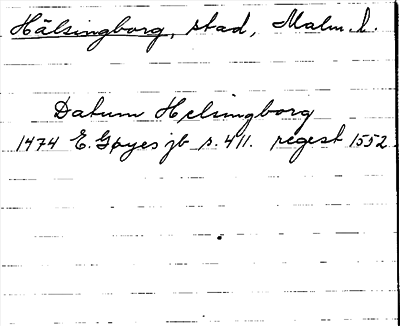 Hälsingborg, stad, Malm. l.
Datum Helsingborg
1474 E. Gøyes jb s. 411. regest 1552.